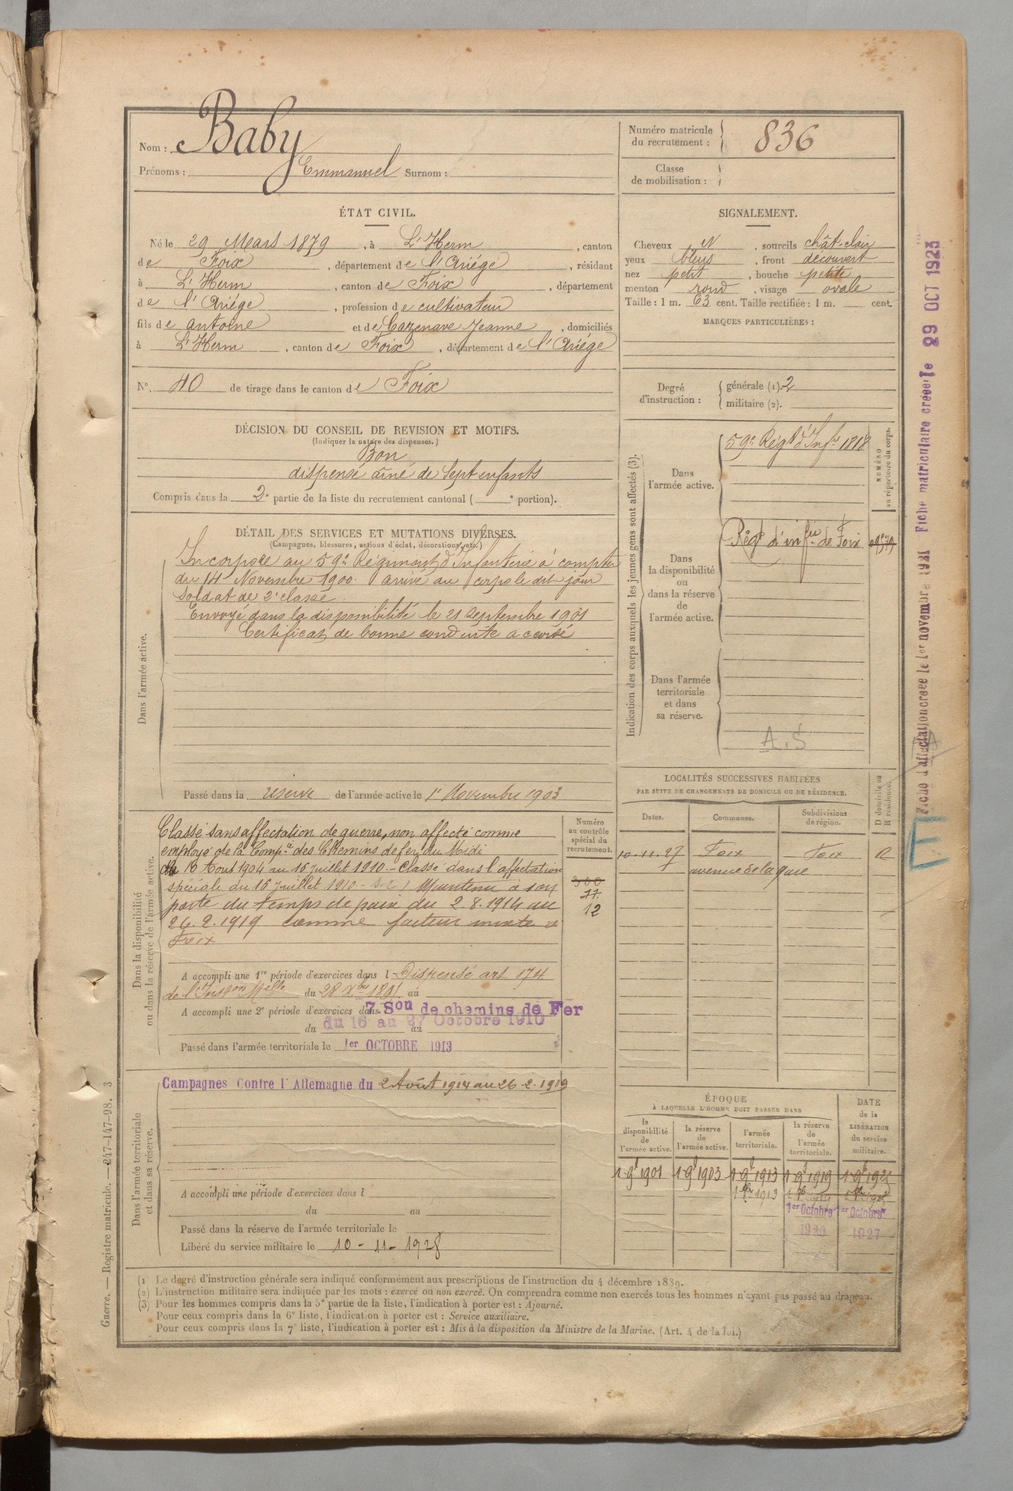 Nom : Baby
Prénoms : Emmanuel Surnom :
Numéro matricule du recrutement : 836
Classe de mobilisation :
ÉTAT CIVIL.
Né le 29 Mars 1879, à L'Herm, canton
de Foix, département de l'Ariége, résidant
à L'Herm, canton de Foix, département
de l'Ariége, profession de cultivateur
fils de antoine et de Cazenave Jeanne, domiciliés
à L'Herm, canton de Foix, département de l'Ariége
N°. 40 de tirage dans le canton de Foix
SIGNALEMENT.
Cheveux N, sourcils chât. clair
yeux bleus, front découvert
nez petit, bouche petite
menton rond, visage ovale
Taille : 1 m. 63 cent. Taille rectifiée : 1 m. cent.
MARQUES PARTICULIÈRES :
Degré d'instruction : générale (1). 2
militaire (2).
DÉCISION DU CONSEIL DE REVISION ET MOTIFS.
(Indiquer la nature des dispenses.)
Bon
dispensé ainé de sept enfants
Compris dans la 2e partie de la liste du recrutement cantonal ( e portion).
DÉTAIL DES SERVICES ET MUTATIONS DIVERSES.
(Campagnes, blessures, actions d'éclat, décorations, etc.)
Dans l'armée active.
Incorporé au 59e Régiment d'Infanterie à compter
du 14 Novembre 1900 arrivé au corps le dit jour
soldat de 2e classe
Envoyé dans la disponibilité le 21 Septembre 1901
Certificat de bonne conduite accordé
Passé dans la réserve de l'armée active le 1r Novembre 1903
Indication des corps auxquels les jeunes gens sont affectés (3).
NUMÉRO au répertoire du corps.
Dans l'armée active.
59e Régt d'Infie 1818
Dans la disponibilité ou dans la réserve de l'armée active.
Régt d'infie de Foix
Dans l'armée territoriale et dans sa réserve.
A.S
LOCALITÉS SUCCESSIVES HABITÉES
PAR SUITE DE CHANGEMENTS DE DOMICILE OU DE RÉSIDENCE.
Dates. Communes. Subdivisions de région. D domicile ou R résidence.
10-11-27 Foix Foix R
avenue de la gare
Dans la disponibilité ou dans la réserve de l'armée active.
Numéro au contrôle spécial du recrutement.
Classé sans affectation de guerre, non affecté comme
employé de la Compie des Chemins de fer du Midi
du 16 Aout 1904 au 16 juillet 1910 - Classé dans l'affectation
spéciale du 16 juillet 1910 - Maintenu à son
poste du temps de paix du 2.8.1914 au
26.2.1919 comme facteur mixte à
Foix
12
A accompli une 1re période d'exercices dans l Dispensé art 174
du 28 Xbre 1891 au
A accompli une 2e période d'exercices dans 7 Son de chemins de Fer
du 16 au 27 Octobre 1910 au
Passé dans l'armée territoriale le 1er OCTOBRE 1913
Dans l'armée territoriale et dans sa réserve.
Campagnes Contre l'Allemagne du 2 Août 1914 au 26-2-1919
A accompli une période d'exercices dans l
du au
Passé dans la réserve de l'armée territoriale le
Libéré du service militaire le 10-11-1928
ÉPOQUE
À LAQUELLE L'HOMME DOIT PASSER DANS
la disponibilité de l'armée active.
la réserve de l'armée active.
l'armée territoriale.
la réserve de l'armée territoriale.
DATE de la LIBÉRATION du service militaire.
1 9e 1901 1 9e 1903 1 9e 1913 1 9e 1919
1 8bre 1913
1er Octobre 1920
1er Octobre 1927
(1) Le degré d'instruction générale sera indiqué conformément aux prescriptions de l'instruction du 4 décembre 1889.
(2) L'instruction militaire sera indiquée par les mots : exercé ou non exercé. On comprendra comme non exercés tous les hommes n'ayant pas passé au drapeau.
(3) Pour les hommes compris dans la 5e partie de la liste, l'indication à porter est : Ajourné.
Pour ceux compris dans la 6e liste, l'indication à porter est : Service auxiliaire.
Pour ceux compris dans la 7e liste, l'indication à porter est : Mis à la disposition du Ministre de la Marine. (Art. 4 de la loi.)
Guerre. — Registre matricule. — 247-147-98. 3
Fiche d'affectation créée le 1er novembre 1921 Fiche matriculaire créée le 29 OCT 1923